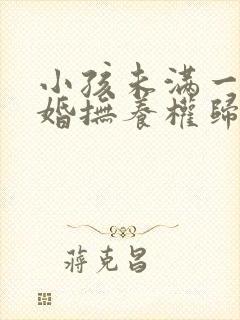 小孩未滿一
婚撫養權歸
蔣克昌